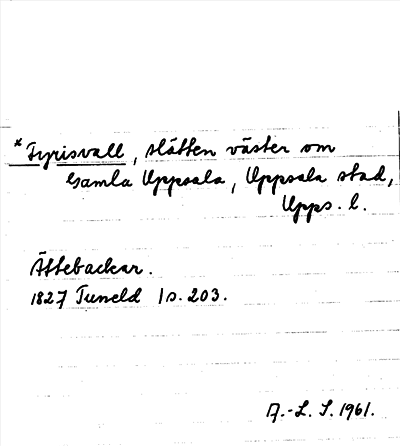 * Fyrisvall, slätten väster om
Gamla Uppsala, Uppsala stad,
Upps. l.
Ättebackar.
1827 Tuneld I s. 203.
A.-L. S. 1961.